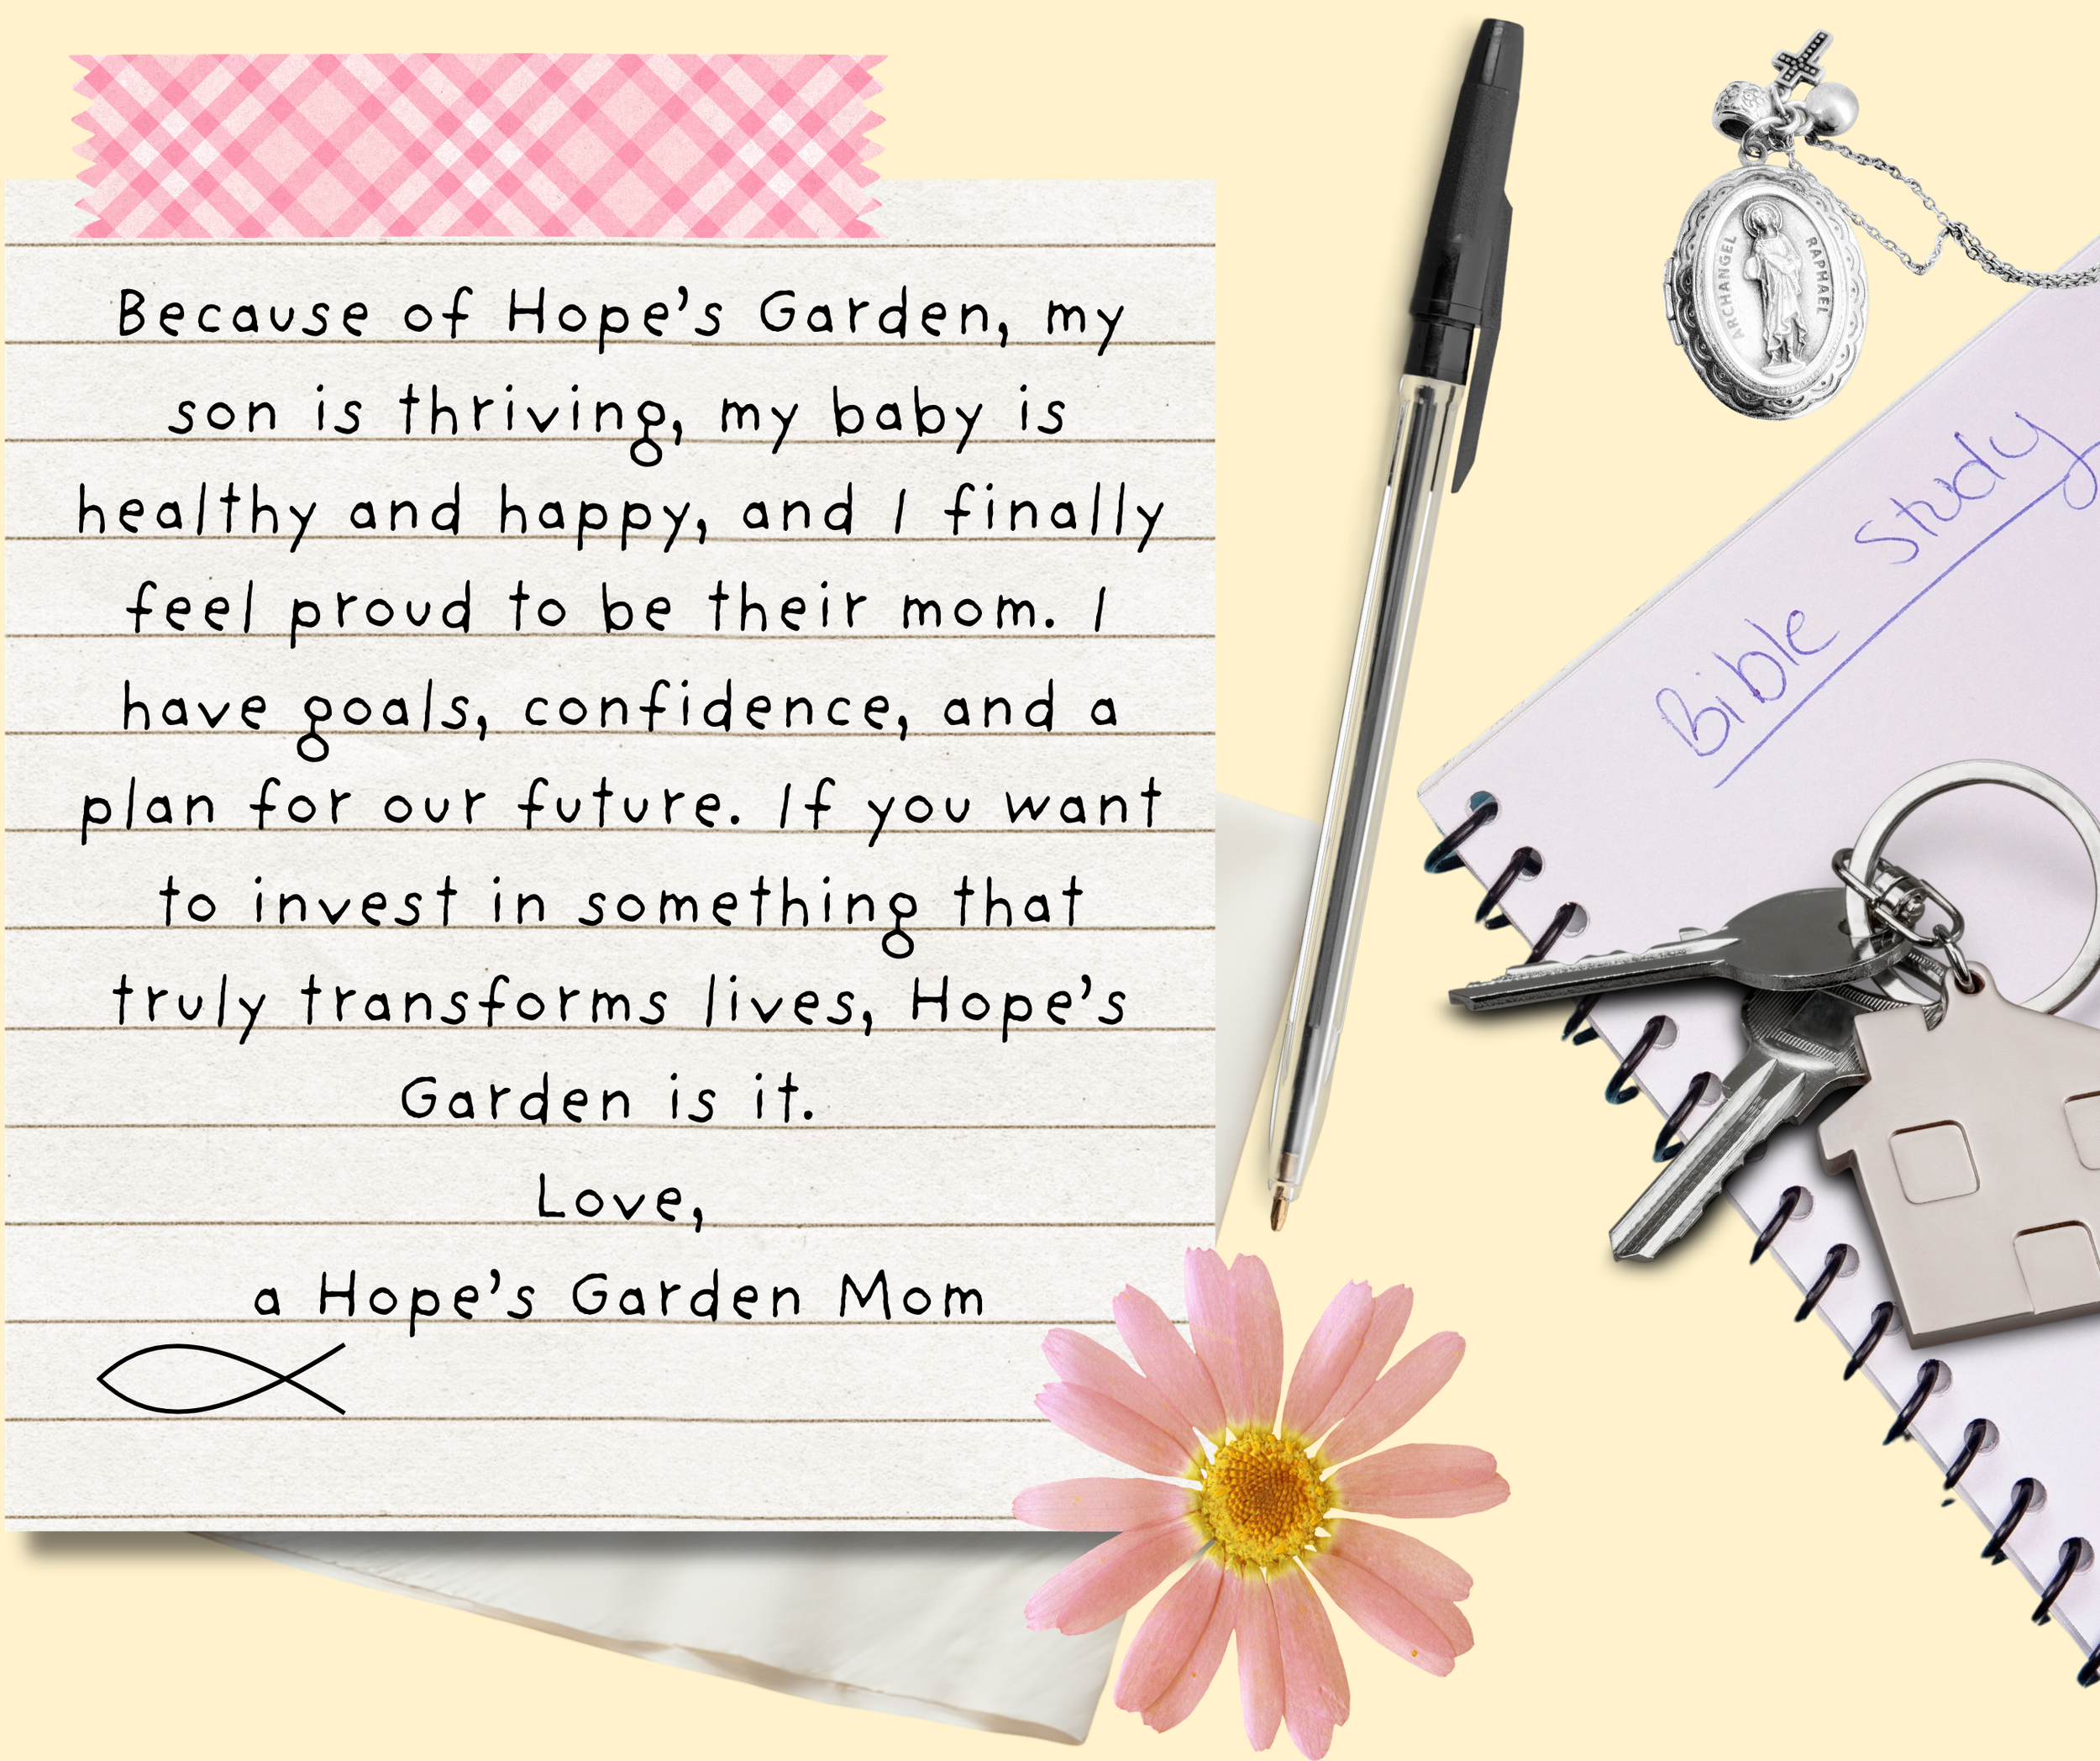 Because of Hope's Garden, my
son is thriving, my baby is
healthy and happy, and I finally
feel proud to be their mom. I
have goals, confidence, and a
plan for our future. If you want
to invest in something that
truly transforms lives, Hope's
Garden is it.
Love,
a Hope's Garden Mom
ARCHANGEL RAPHAEL
Bible Study